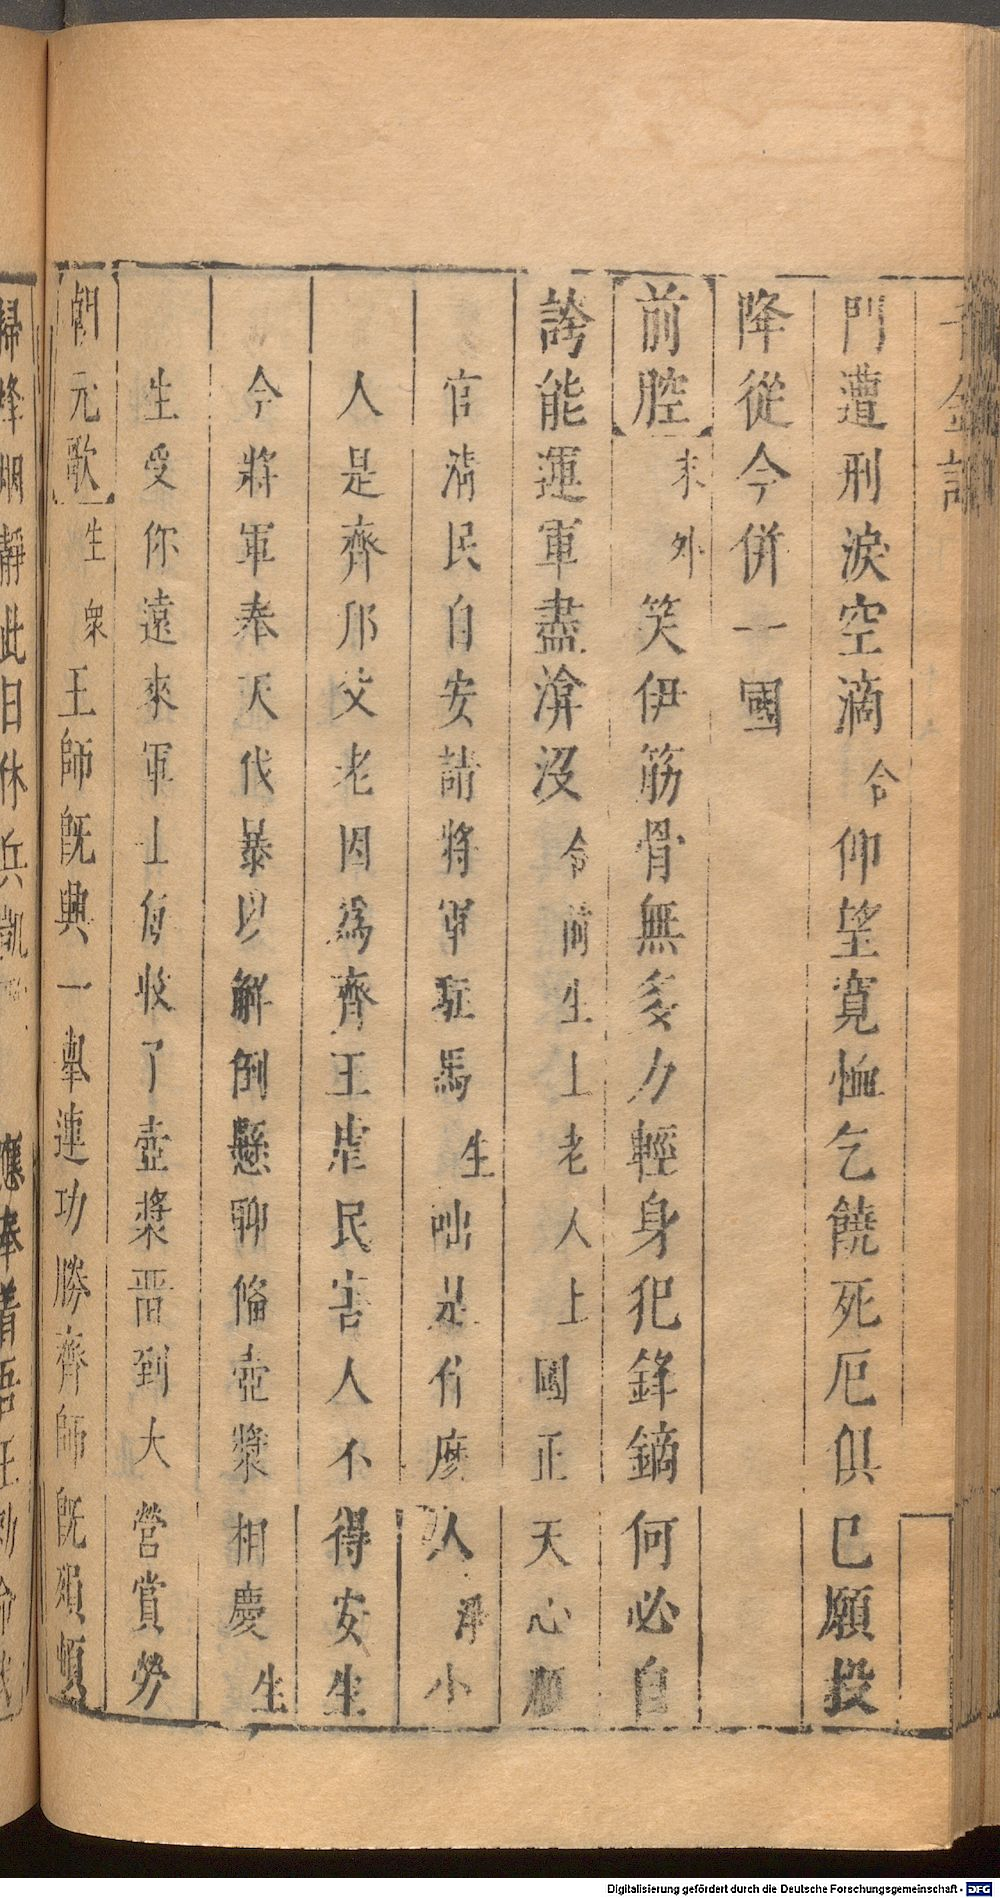 千金記
門遭刑淚空滴合仰望寛恤乞饒死厄俱已願投
降從今併一國
前腔末外笑伊筋骨無多力輕身犯鋒鏑何必自
誇能運軍盡渰沒合前生上老人上國正天心順
官清民自安請將軍駐馬生咄是什麽人淨小
人是齊邦父老因爲齊王虐民害人不得安生
今將軍奉天伐暴以解倒懸聊偹壺漿相慶生
生受你遠來軍士每收了壺漿晋到大營賞勞
朝元歌生衆王師旣興一舉連功勝齊師旣殞頓
掃烽烟靜此日休兵凱
應奉着吾王
Digitalisierung gefördert durch die Deutsche Forschungsgemeinschaft - DFG